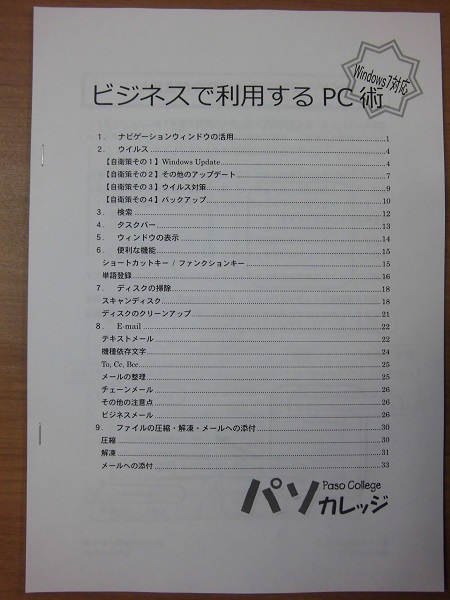 Windows7対応
ビジネスで利用する PC 術
１． ナビゲーションウィンドウの活用 1
２． ウイルス 4
【自衛策その１】Windows Update 4
【自衛策その２】その他のアップデート 7
【自衛策その３】ウイルス対策 9
【自衛策その４】バックアップ 10
３． 検索 12
４． タスクバー 13
５． ウィンドウの表示 14
６． 便利な機能 15
ショートカットキー / ファンクションキー 15
単語登録 16
７． ディスクの掃除 18
スキャンディスク 18
ディスクのクリーンアップ 21
８． E-mail 22
テキストメール 22
機種依存文字 24
To, Cc, Bcc 25
メールの整理 25
チェーンメール 26
その他の注意点 26
ビジネスメール 26
９． ファイルの圧縮・解凍・メールへの添付 30
圧縮 30
解凍 31
メールへの添付 33
Paso College
パソカレッジ